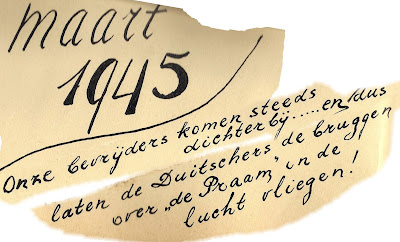 maart
1945
Onze bevrijders komen steeds
dichterbij.....en dus
laten de Duitschers de bruggen
over „de Praam" in de
lucht vliegen!